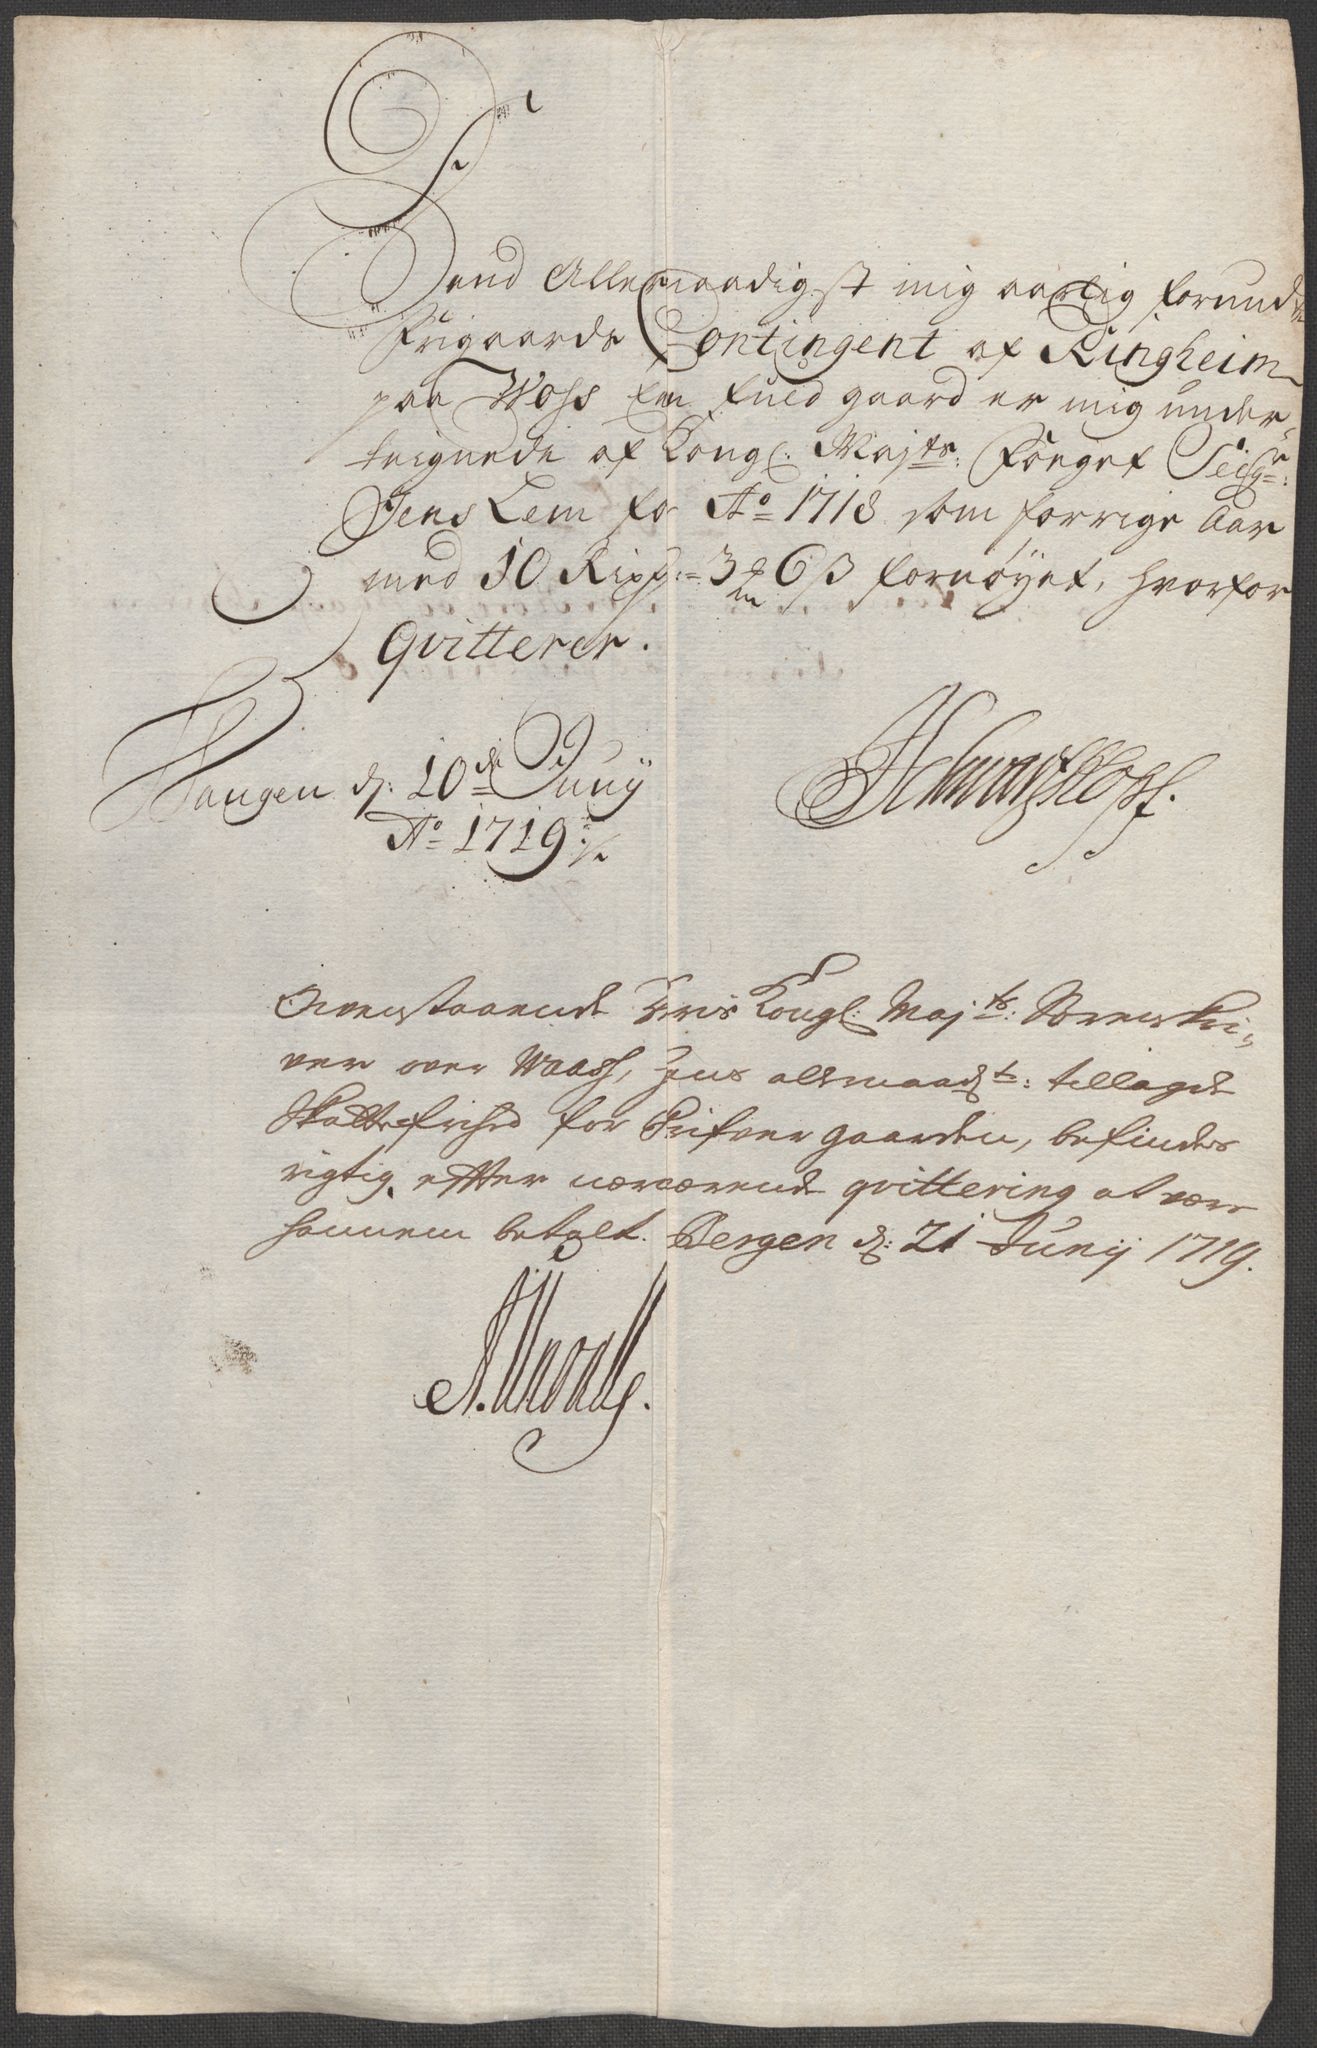 Dend Allernaadigst mig aarlig forundte
Frigaards Contingent af Ringheim
paa Woss En fuld gaard er mig under-
teignede af Kongl: Majts: Foeget Seigr:
Jens Lem for Ao 1718 som forrige Aar
med 10 Rixdr: 3 mk 6 ß fornøyet, hvorfor
qvitterer.
Wangen d: 10de Junij
Ao 1719
Schwartzkopf.
Ovenstaaende Kongl: Majts: Sorenskri-
ver over Waass, hans allernaadst: tillagde
Skattefrihed for gaarden, befindes
rigtig efter nærværende qvittering at være
hannem betalt. Bergen d: 21 Junij 1719.